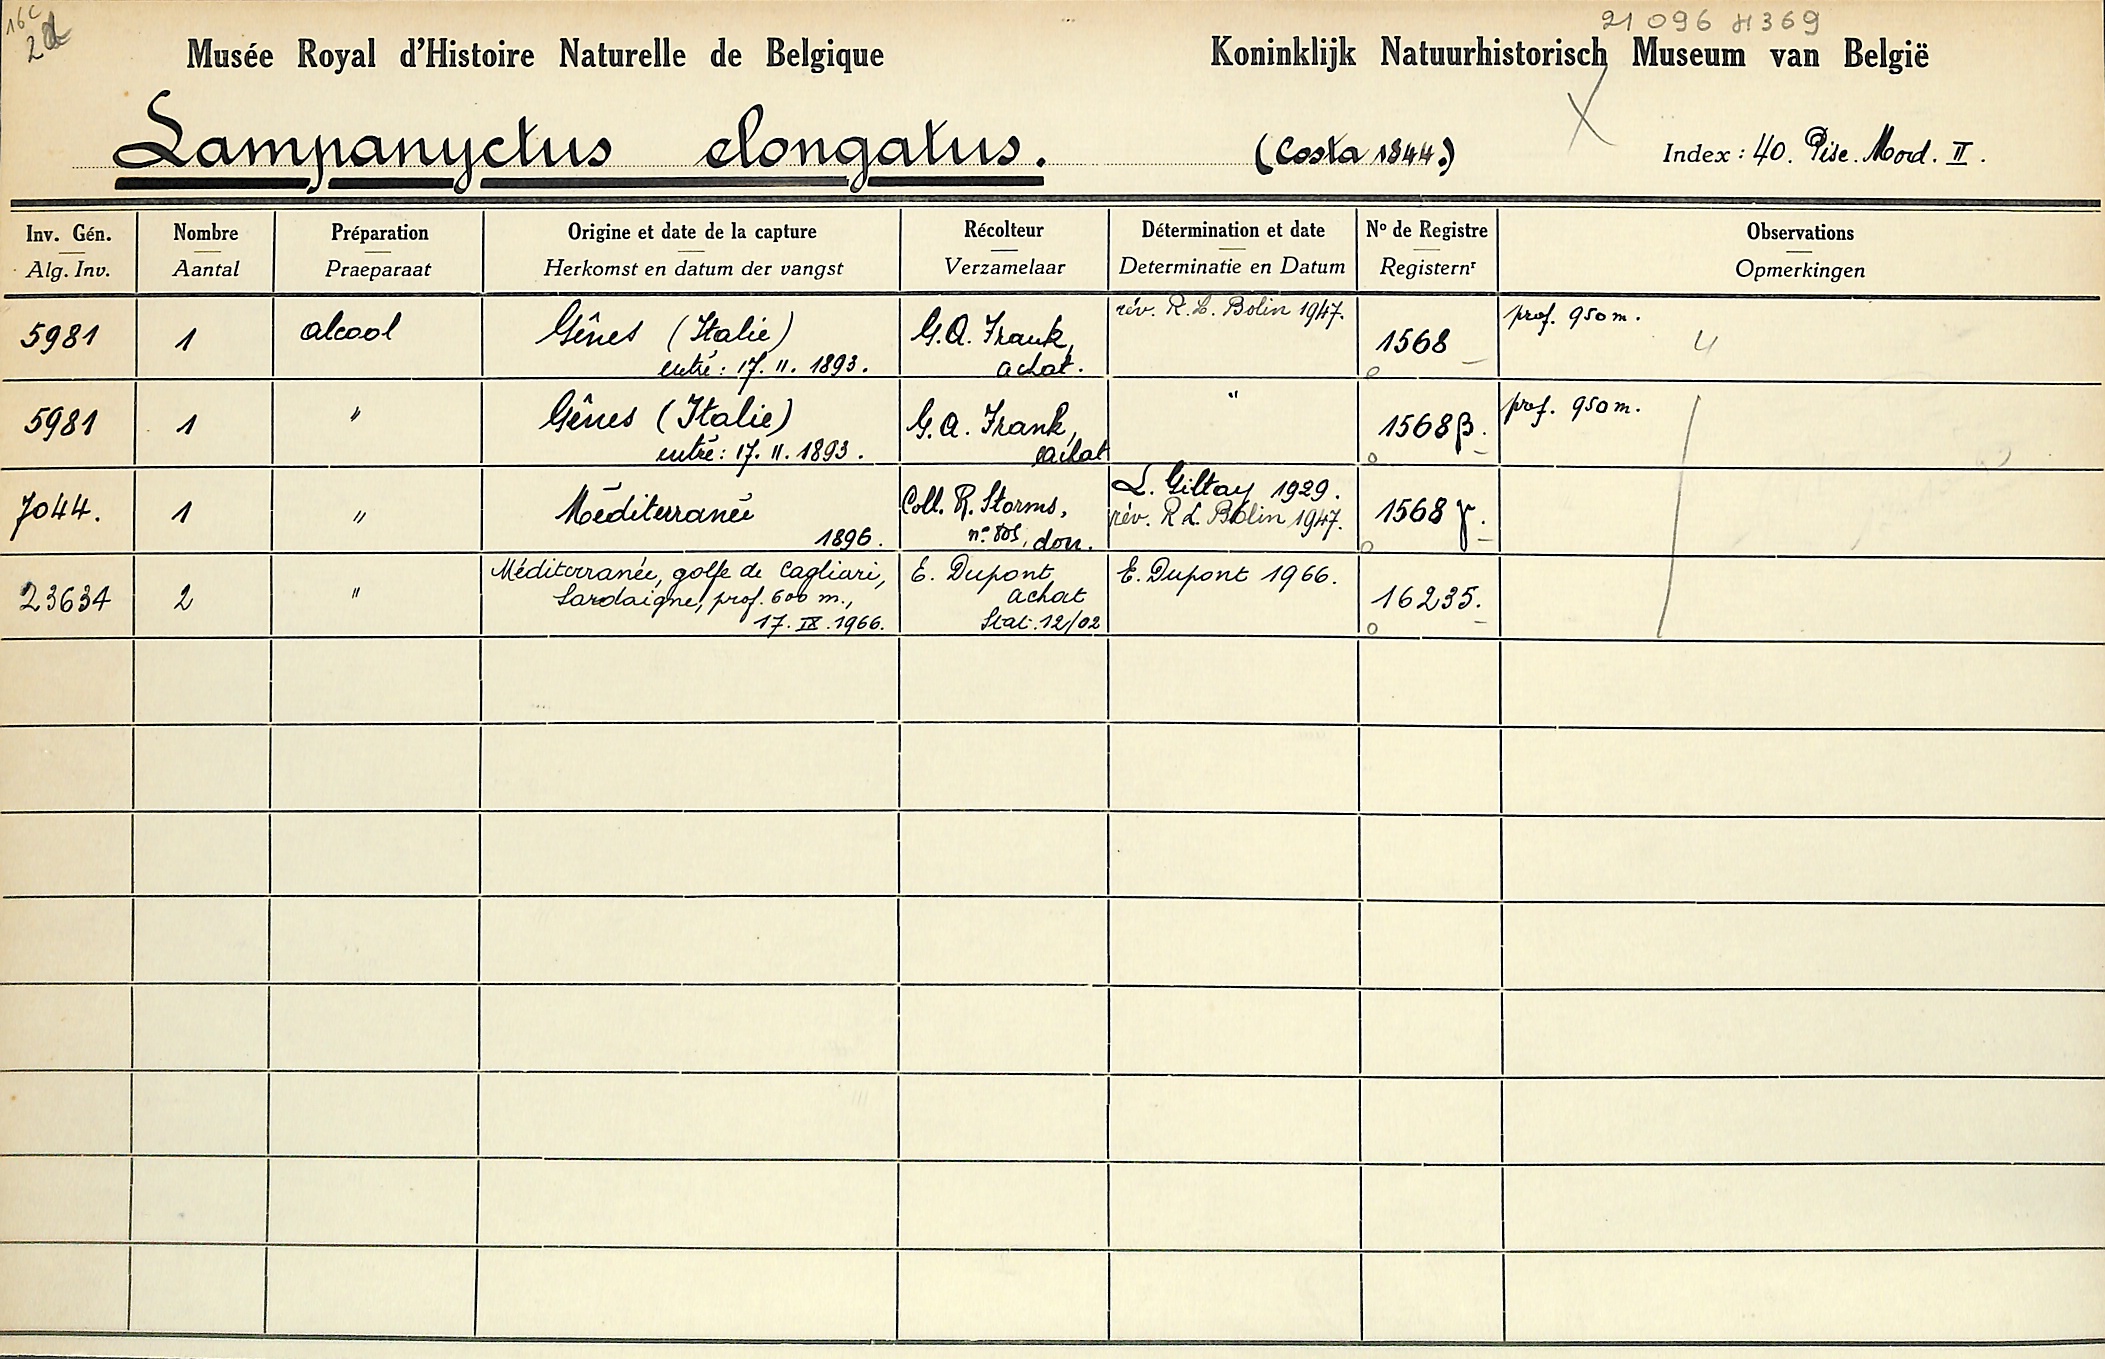 16c
2
21 096 H369
Musée Royal d'Histoire Naturelle de Belgique Koninklijk Natuurhistorisch Museum van België
Lampanyctus elongatus. (Costa 1844.) Index : 40. Pisc. Mord. II.
Inv. Gén. Nombre Préparation Origine et date de la capture Récolteur Détermination et date N° de Registre Observations
Alg. Inv. Aantal Praeparaat Herkomst en datum der vangst Verzamelaar Determinatie en Datum Registernr Opmerkingen
5981 1 alcool Gênes (Italie) G.A. Frank, rév. R.L. Bolin 1947. 1568 prof. 950 m. 4
entré : 17. II. 1893. achat.
5981 1 " Gênes (Italie) G.A. Frank, " 1568 β. prof. 950 m.
entré : 17. II. 1893. achat
7044. 1 " Méditerranée Coll. R. Storms, L. Giltay 1929. 1568 γ.
1896. n° don. rév. R.L. Bolin 1947.
23634 2 " Méditerranée, golfe de Cagliari, E. Dupont E. Dupont 1966. 16235.
Sardaigne, prof. 600 m., achat
17. IX. 1966. Stat. 12/02